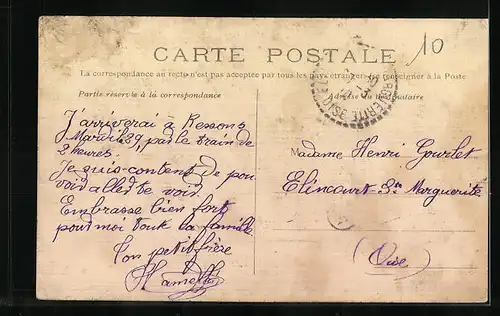 10
CARTE POSTALE
La correspondance au recto n'est pas acceptée par tous les pays étrangers (se renseigner à la Poste
Partie réservée à la correspondance
Adresse du destinataire
J'arriverai à Ressons
Mardi 29 par le train de
2 heures.
Je suis content de pou
voir aller te voir
Embrasse bien fort
pour moi toute la famille
Ton petit frère
Madame Henri Gourlet
Elincourt Ste Marguerite
(Oise)